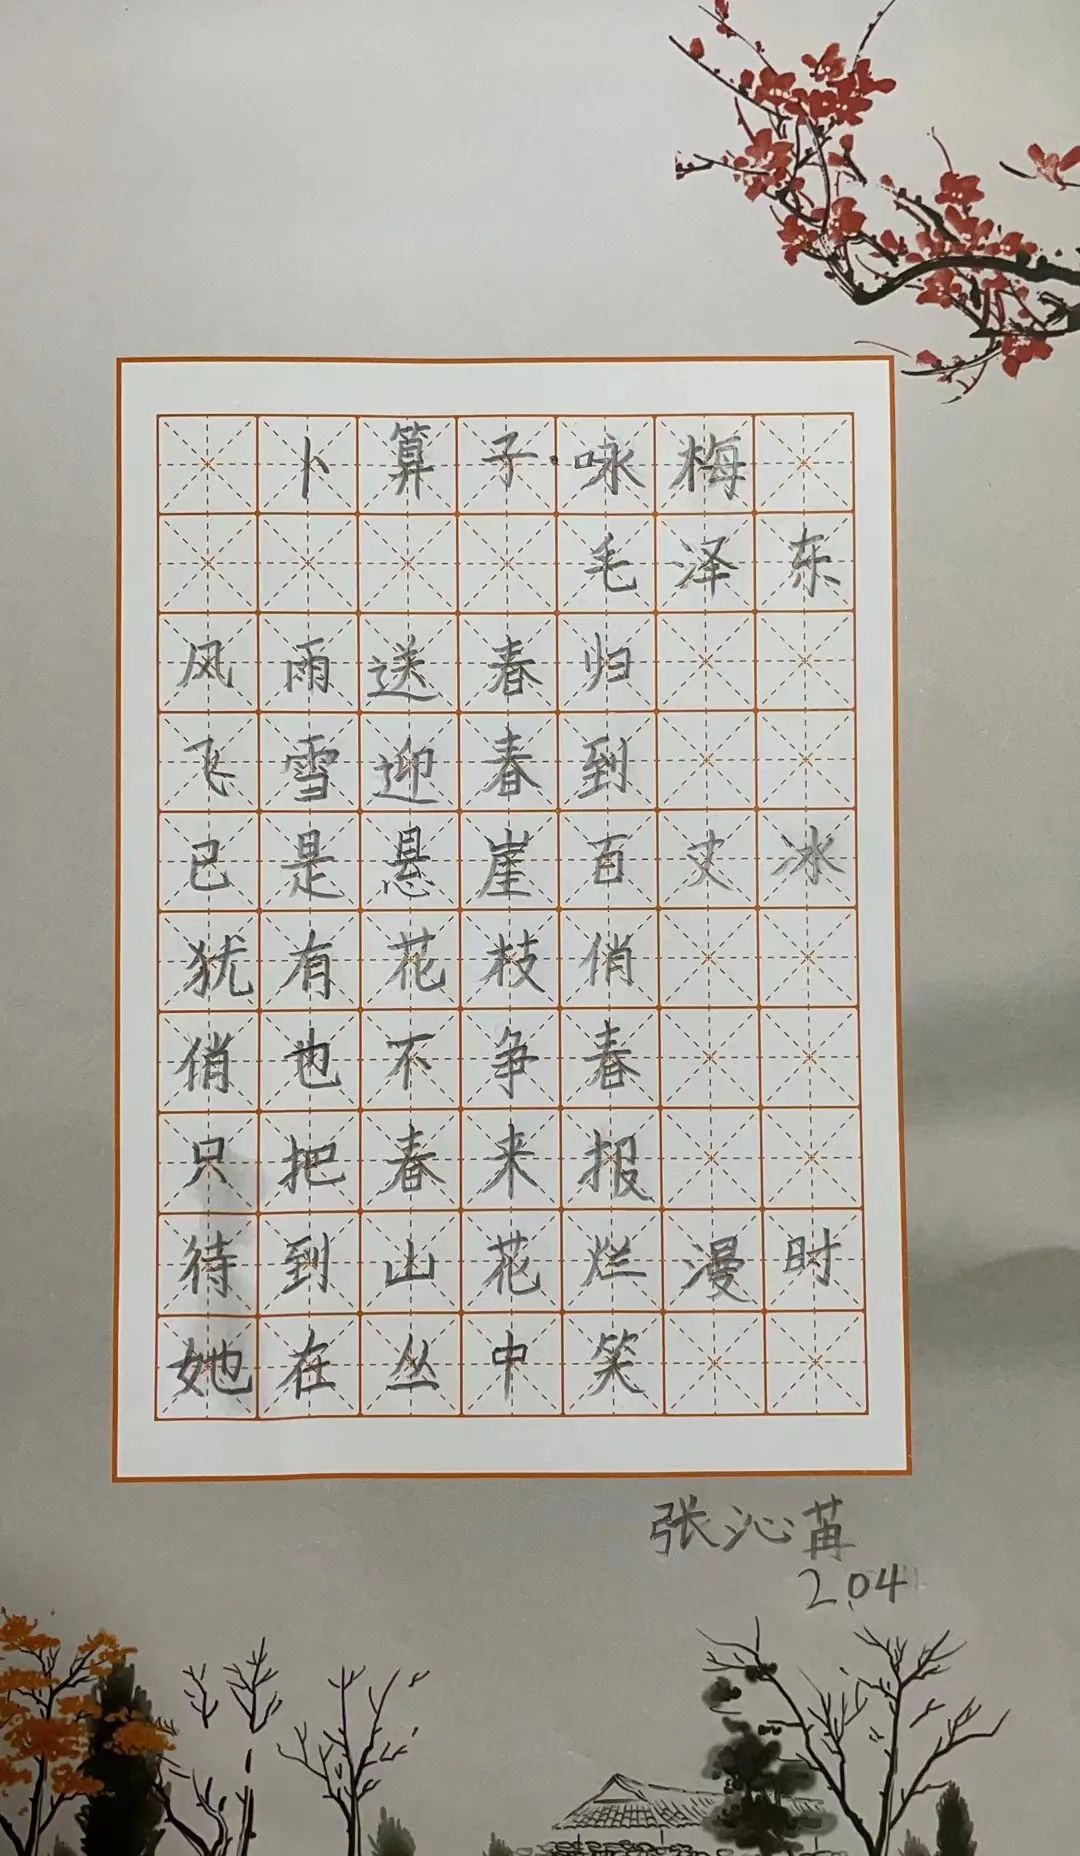 卜算子·咏梅
毛泽东
风雨送春归
飞雪迎春到
已是悬崖百丈冰
犹有花枝俏
俏也不争春
只把春来报
待到山花烂漫时
她在丛中笑
张沁苒
204